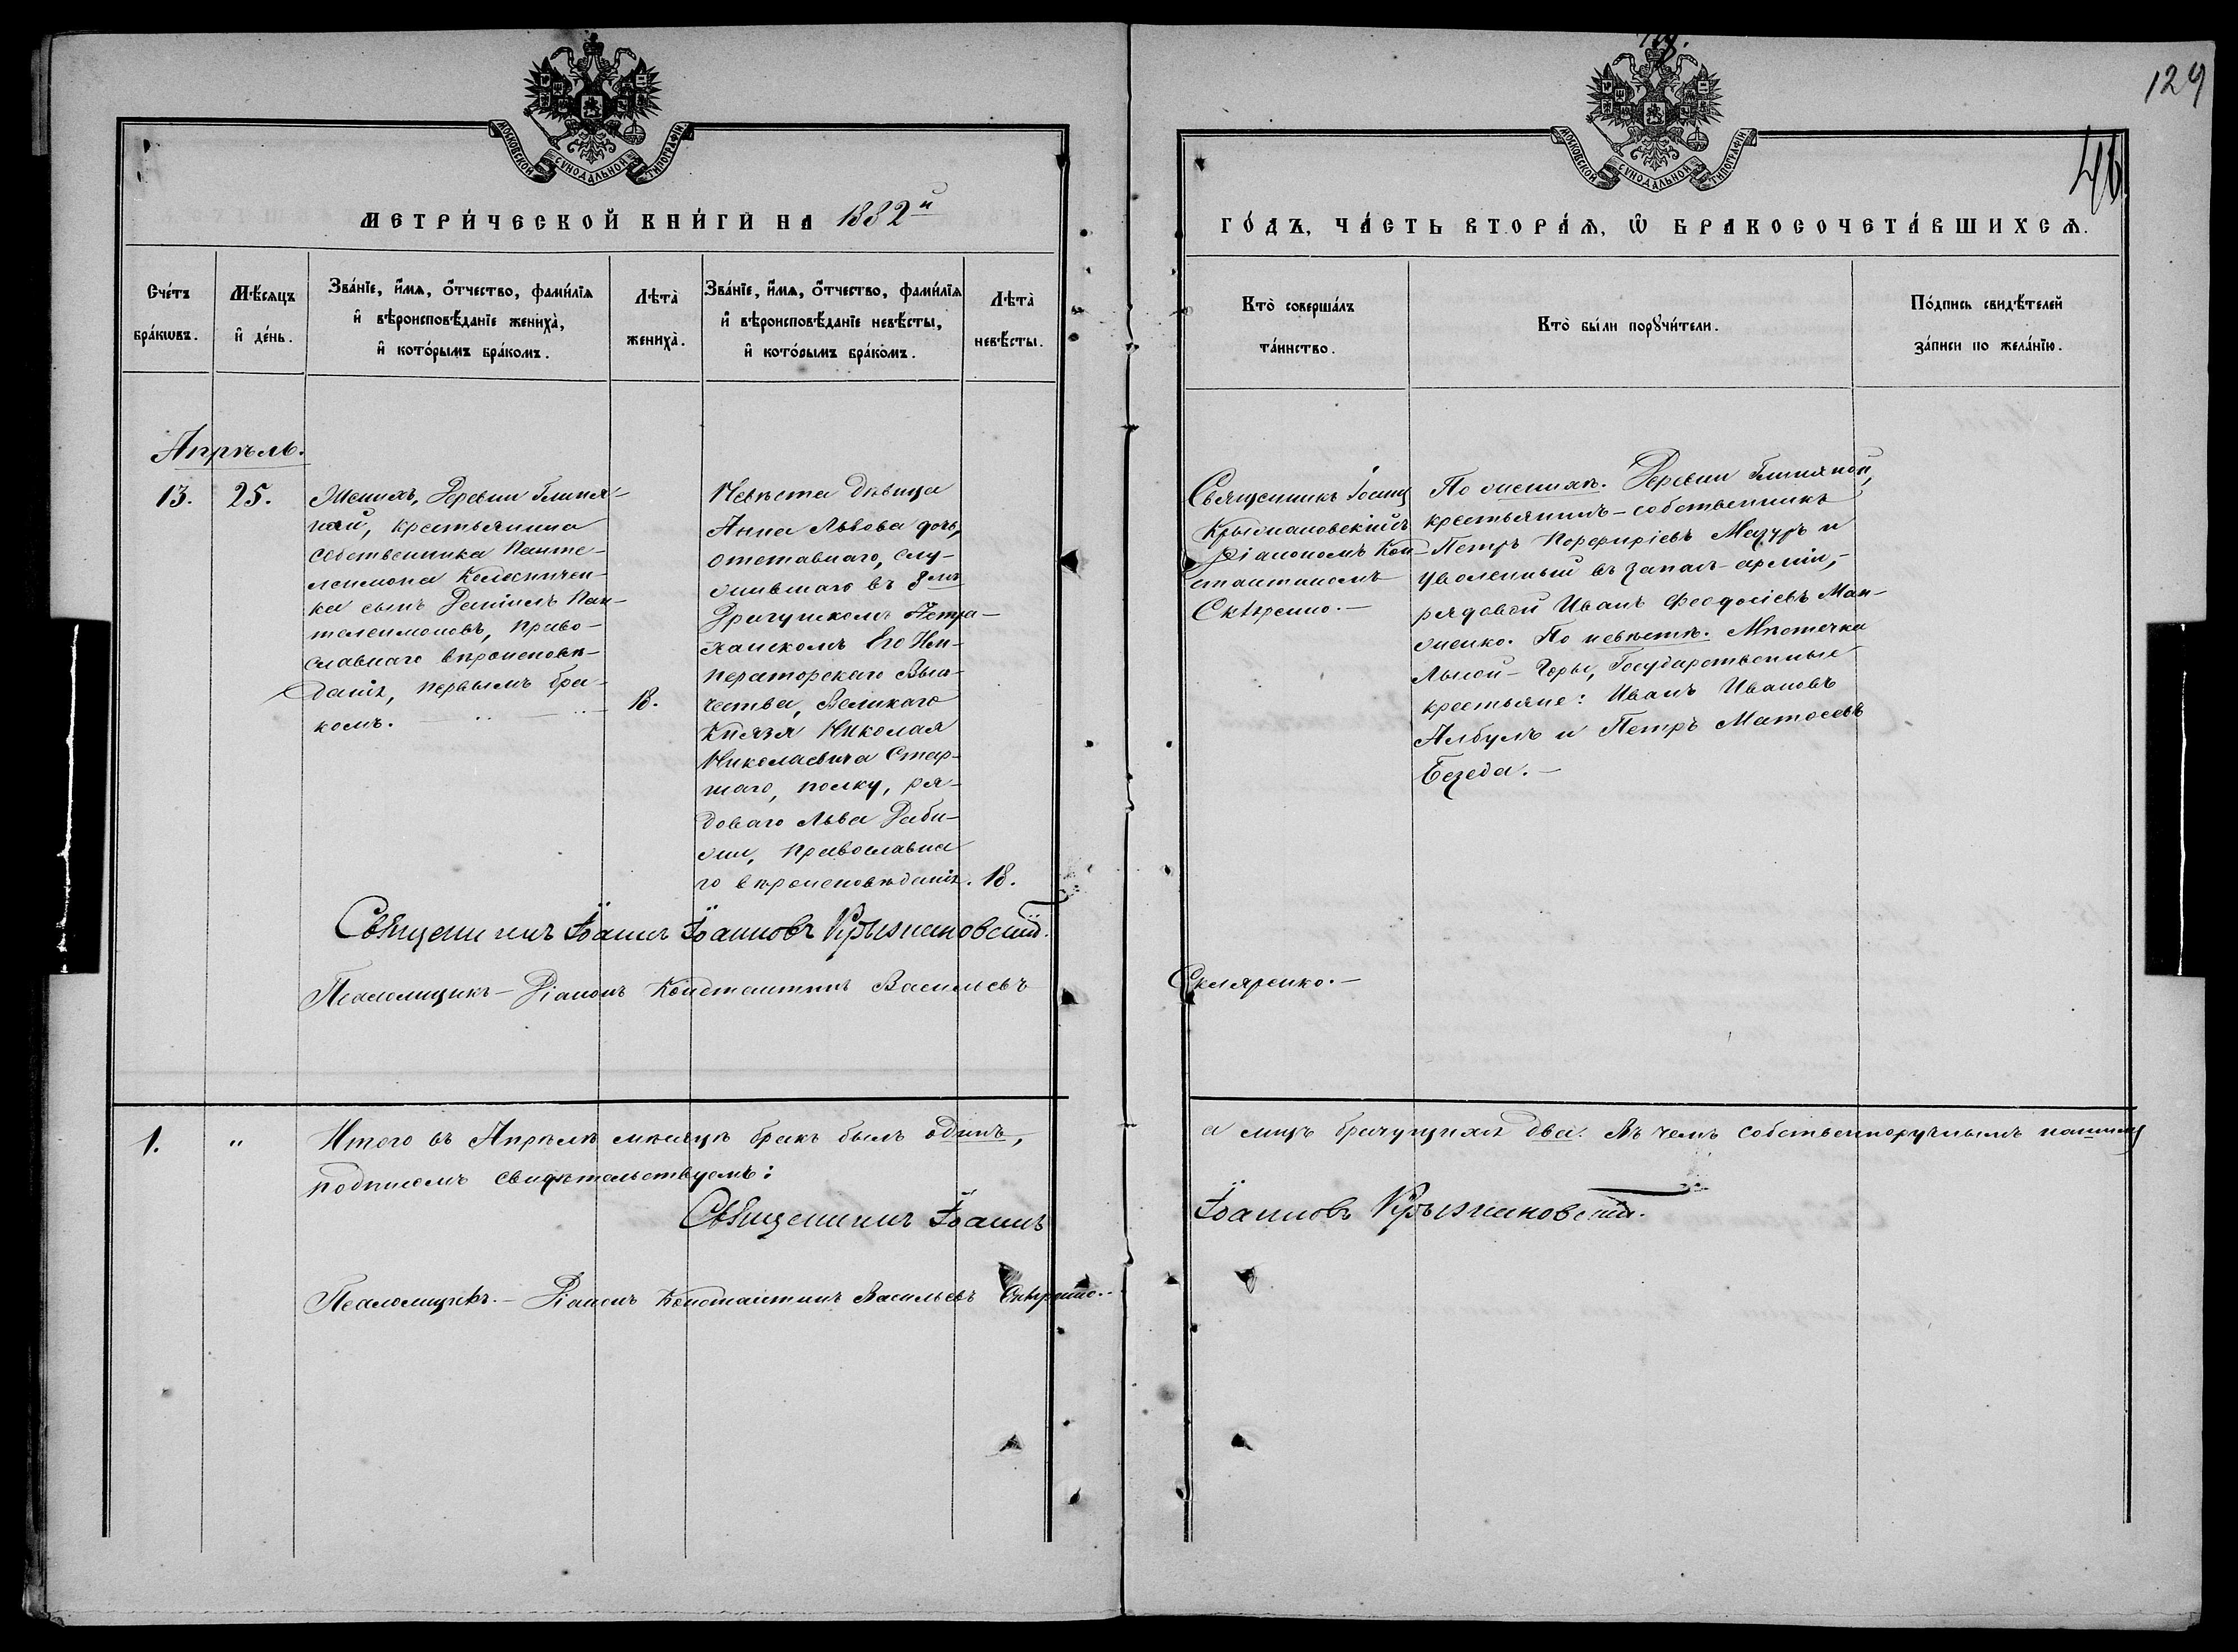 МОСКОВСКОЙ СѴНОДАЛЬНОЙ ТИПОГРАФІИ
МЕТРИ́ЧЕСКОЙ КНИ́ГИ НА 1882й
Сче́тъ бра́кѡвъ.
Мѣ́сяцъ и҆ де́нь.
Зва́нїе, и҆́мѧ, ѻ҆́тчество, фами́лїѧ и҆ вѣроисповѣ́данїе жениха̀, и҆ кото́рымъ бра́комъ.
Лѣта̀ жениха̀.
Зва́нїе, и҆́мѧ, ѻ҆́тчество, фами́лїѧ и҆ вѣроисповѣ́данїе невѣ́сты, и҆ кото́рымъ бра́комъ.
Лѣта̀ невѣ́сты.
Апрѣль.
13. 25.
Женихъ, Деревни Глиня-
ной, крестьянина
собственника Панте-
леимона Колесничен-
ка сынъ Даніилъ Пан-
телеимоновъ, право-
славнаго вѣроисповѣ-
данія, первымъ бра-
комъ.
18.
Невѣста дѣвица
Анна Львова дочь,
отставнаго, слу-
жившаго въ 8мъ
Драгунскомъ Астра-
ханскомъ Его Им-
ператорскаго Высо-
чества, Великаго
Князя Николая
Николаевича Стар-
шаго, полку, ря-
доваго Льва Даби-
жи, православна
го вѣроисповѣданія. 18.
Священникъ Іоаннъ Іоанновъ Крыжановскій.
Псаломщикъ - Діаконъ Константинъ Васильевъ
1. "
Итого въ Апрѣлѣ мѣсяцѣ бракъ былъ одинъ,
подписомъ свидѣтельствуемъ:
Священникъ Іоаннъ
Псаломщикъ. - Діаконъ Константинъ Васильевъ Скляренко.
129
46
МОСКОВСКОЙ СѴНОДАЛЬНОЙ ТИПОГРАФІИ
ГО́ДЪ, ЧА́СТЬ ВТОРА́Ѧ, Ѡ҆ БРАКОСОЧЕТА́ВШИХСѦ.
Кто̀ соверша́лъ та́инство.
Кто̀ бы́ли порꙋчи́тели.
По́дпись свидѣ́телей за́писи по жела́нїю.
Священникъ Іоаннъ
Крыжановскій съ
Діакономъ Кон-
стантиномъ
Скляренко.-
По женихѣ. Деревни Глиняной,
крестьянинъ - собственникъ
Петръ Порфиріевъ Мазуръ и
уволенный въ запасъ арміи, -
рядовой Иванъ Феодосіевъ Ман-
женко. По невѣстѣ. Мѣстечка
Лысой-Горы, Государственные
крестьяне: Иванъ Ивановъ
Албулъ и Петръ Матоеевъ
Безеда.-
Скляренко.-
а лицъ брачущихся два. Въ чемъ собственноручнымъ нашимъ
Іоанновъ Крыжановскій.